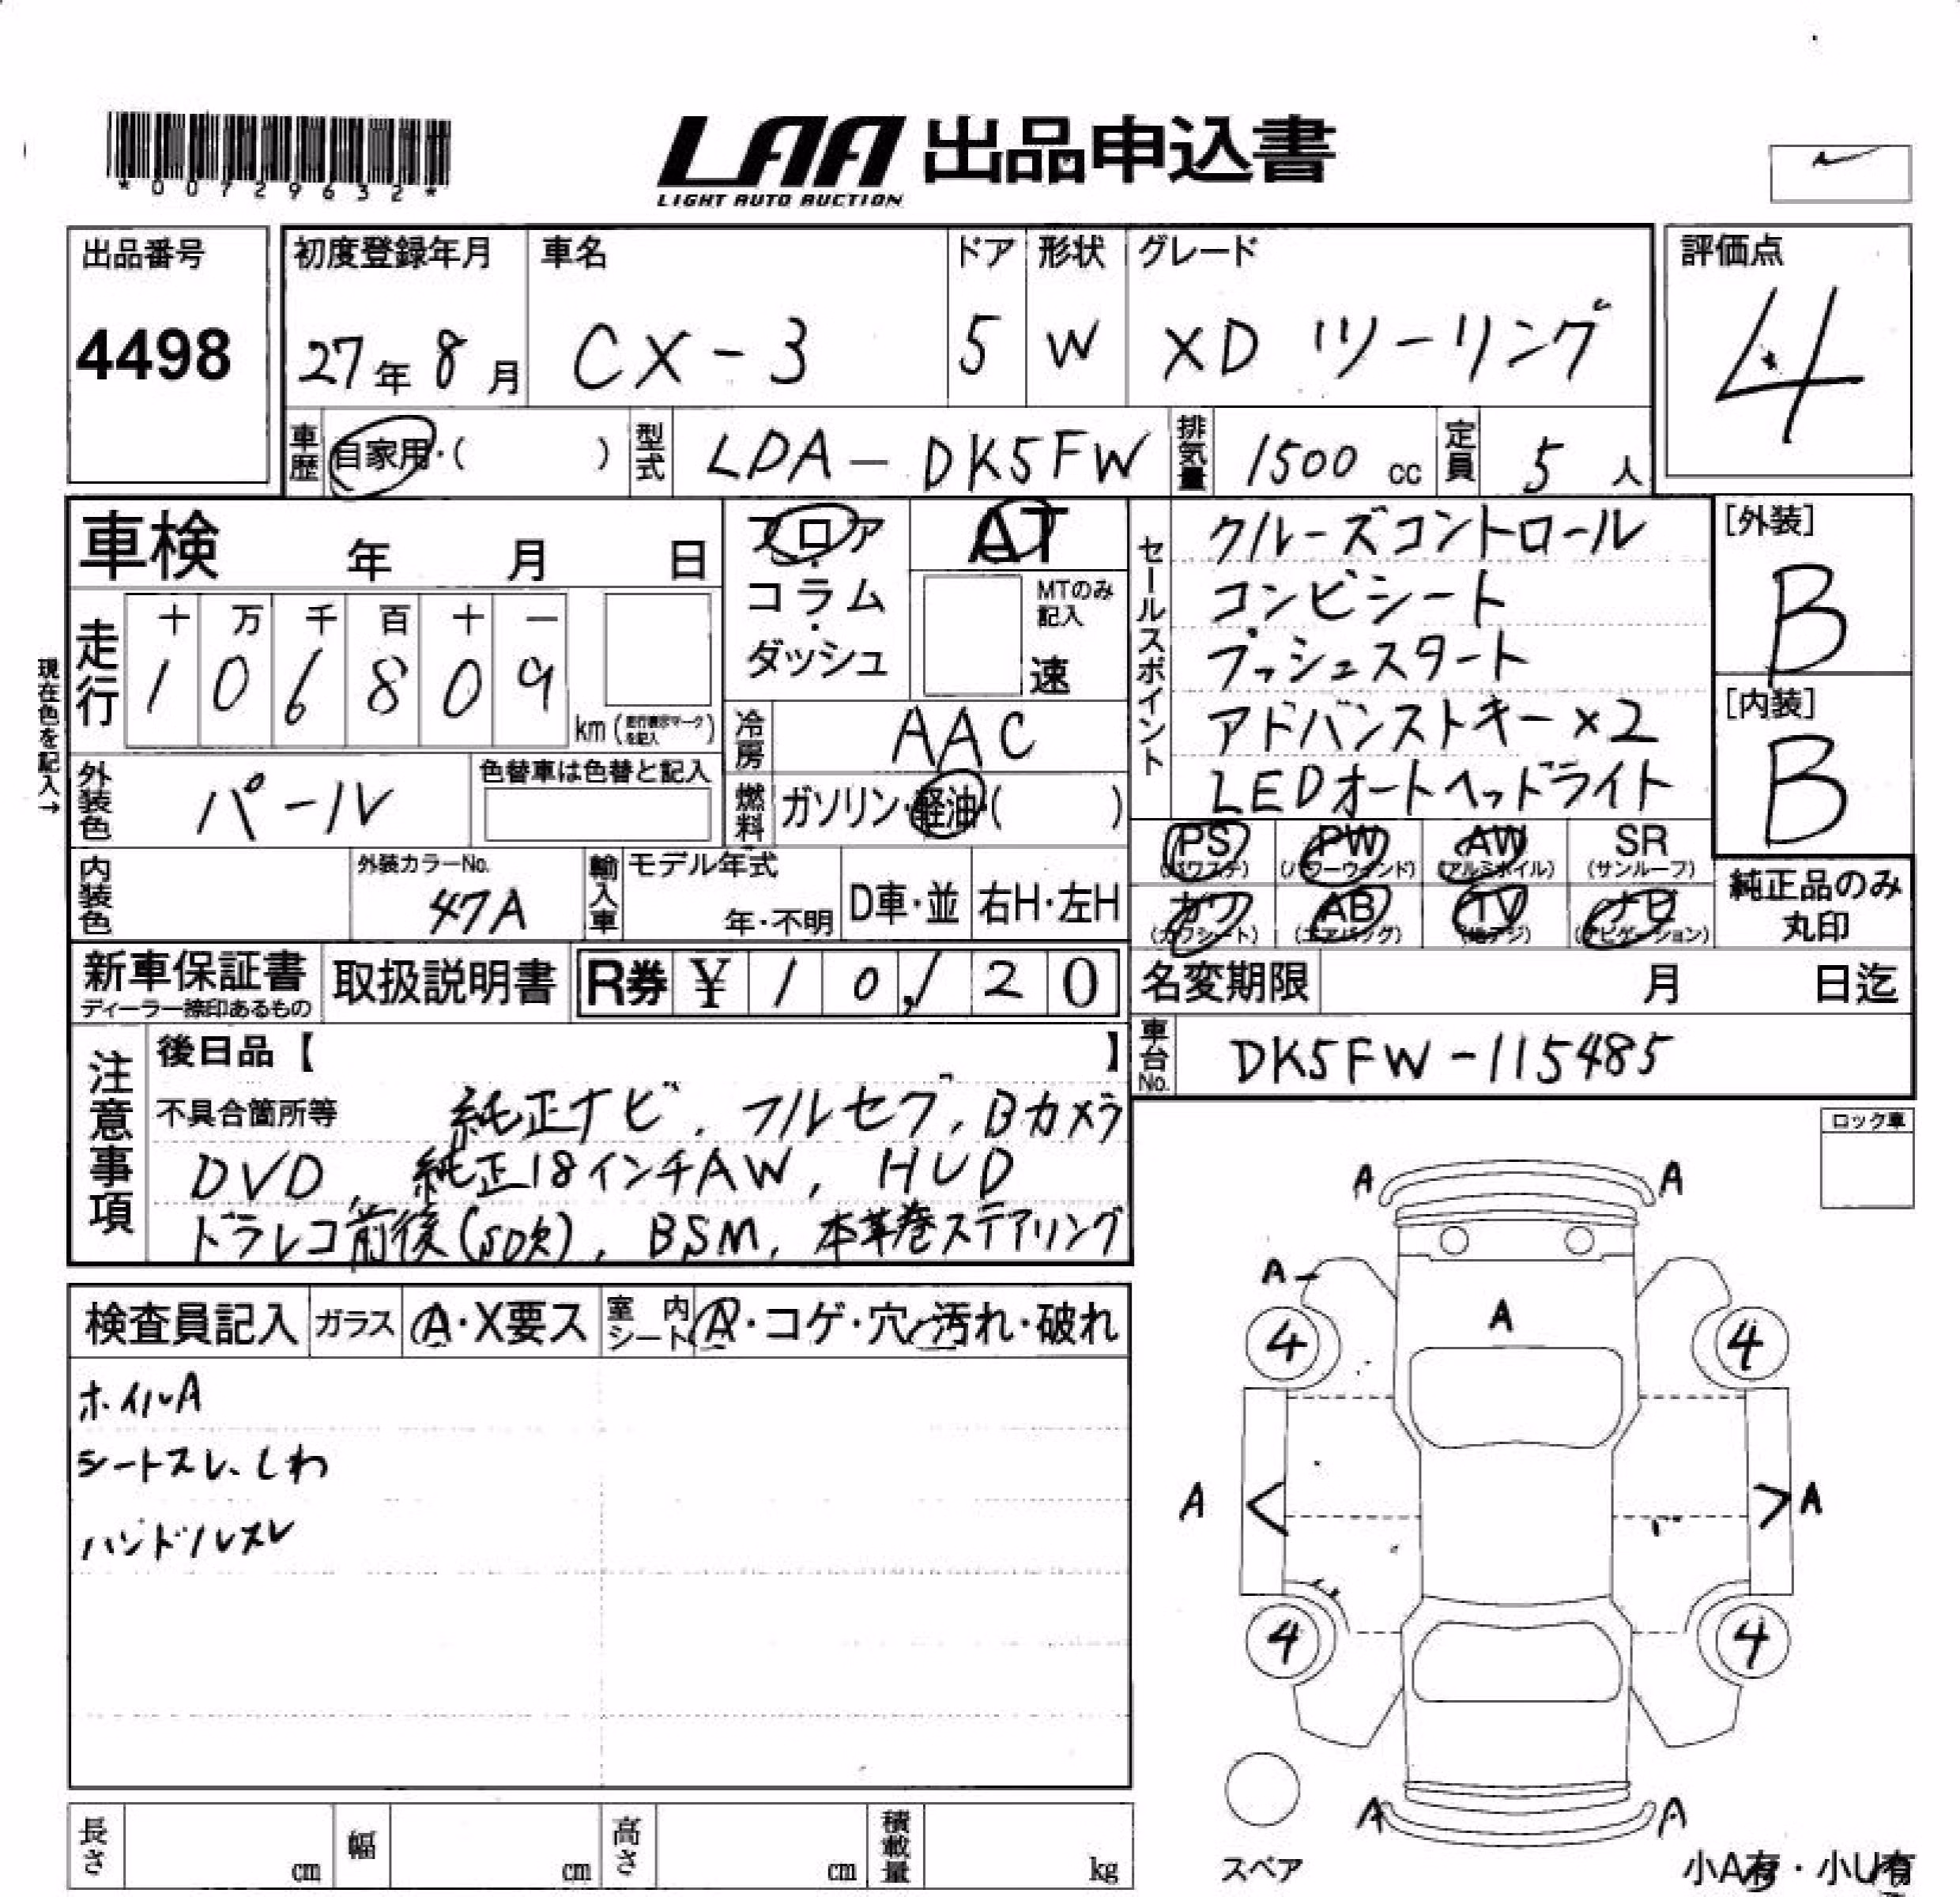 *00729632*
LAA 出品申込書
LIGHT AUTO AUCTION
出品番号
4498
初度登録年月
27年8月
車名
CX-3
ドア
5
形状
W
グレード
XD ツーリング
評価点
4
車歴 自家用・( )
型式 LDA-DK5FW
排気量 1500 cc
定員 5 人
車検 年 月 日
フロア・コラム・ダッシュ
AT
MTのみ記入
速
セールスポイント
クルーズコントロール
コンビシート
プッシュスタート
アドバンストキー×2
LEDオートヘッドライト
[外装]
B
[内装]
B
現在色を記入→
走行
十 万 千 百 十 一
1 0 6 8 0 9
km (走行表示マークを記入)
冷房 AAC
外装色 パール
色替車は色替と記入
燃料 ガソリン・軽油・( )
内装色
外装カラーNo.
47A
輸入車
モデル年式
年・不明
D車・並
右H・左H
PS (パワステ)
PW (パワーウインド)
AW (アルミホイル)
SR (サンルーフ)
カワ (カワシート)
AB (エアバッグ)
TV (地デジ)
ナビ (ナビゲーション)
純正品のみ丸印
新車保証書
ディーラー捺印あるもの
取扱説明書
R券 ¥ 1 0, 1 2 0
名変期限 月 日迄
車台No. DK5FW-115485
注意事項
後日品【 】
不具合箇所等 純正ナビ, フルセグ, Bカメラ
DVD, 純正18インチAW, HUD
ドラレコ前後(SD欠), BSM, 本革巻ステアリング
ロック車
検査員記入
ガラス A・X要ス
室内シート A・コゲ・穴・汚れ・破れ
ホイルA
シートスレ、しわ
ハンドルスレ
A A
A
A
4 4
A < > A
4 4
A A
スペア
小A有・小U有
長さ cm
幅 cm
高さ cm
積載量 kg